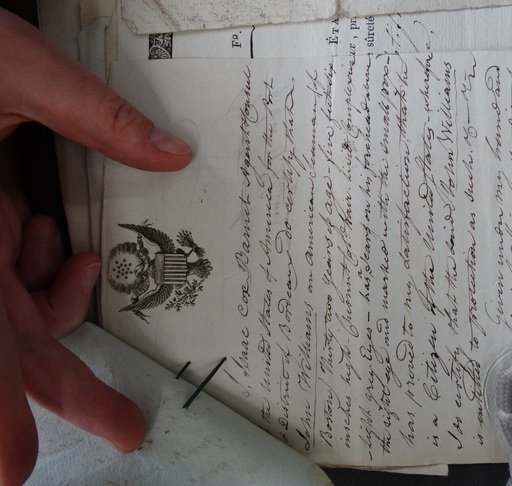 I, Isaac Cox Barnet
the United States of America for the Port
& District of Bordeaux do certify that
John Williams an American Seaman of
Boston Thirty two years of age - five feet
inches high - Brown hair
light grey Eyes - has a scar on his forehead
the right eye and marked with the small pox
has proved to my satisfaction, that he
is a Citizen of the United States - wherefore,
I do certify that the said John Williams
is to protection as such &
Given under my hand and
FP.
ÉTA
ur, pr
sûreté